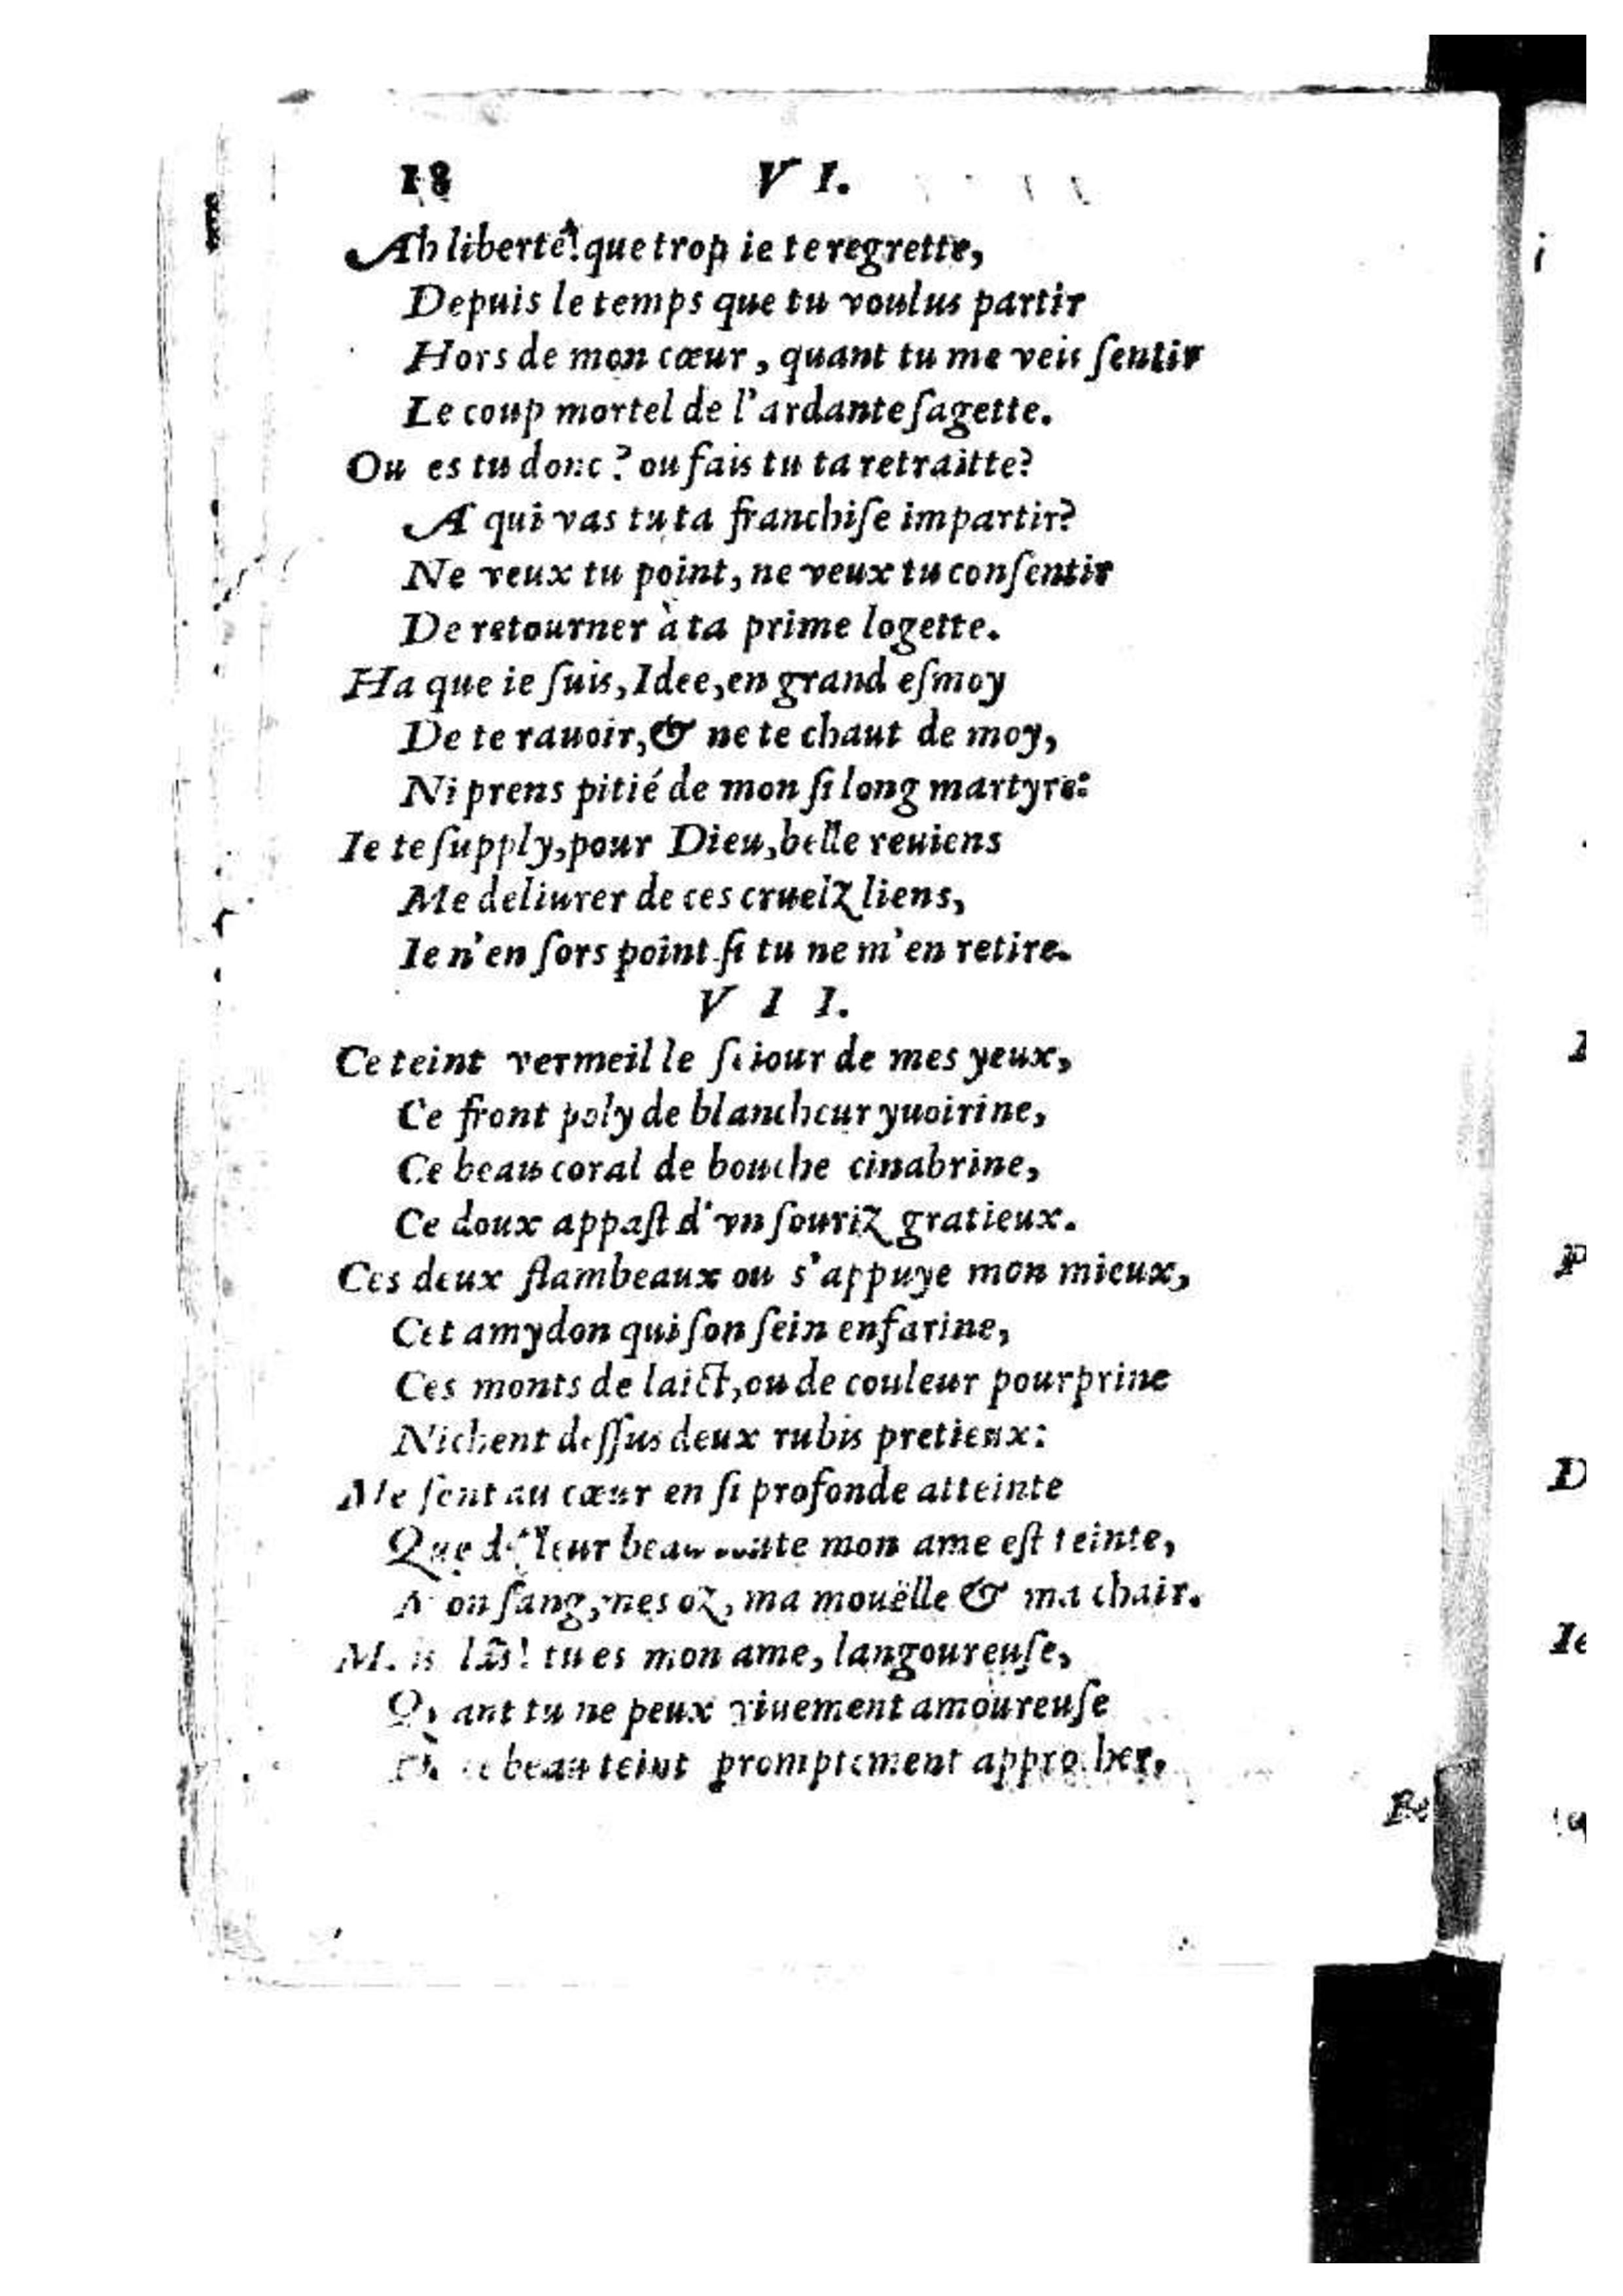 18 VI.
Ah liberté! que trop ie te regrette,
Depuis le temps que tu voulus partir
Hors de mon cœur, quant tu me veis ſentir
Le coup mortel de l'ardante ſagette.
Ou es tu donc? ou fais tu ta retraitte?
A qui vas tu ta franchiſe impartir?
Ne veux tu point, ne veux tu conſentir
De retourner à ta prime logette.
Ha que ie ſuis, Idee, en grand eſmoy
De te rauoir, & ne te chaut de moy,
Ni prens pitié de mon ſi long martyre:
Ie te ſupply, pour Dieu, belle reuiens
Me deliurer de ces cruelz liens,
Ie n'en ſors point ſi tu ne m'en retire.
VII.
Ce teint vermeil le ſeiour de mes yeux,
Ce front poly de blancheur yuoirine,
Ce beau coral de bouche cinabrine,
Ce doux appaſt d'vn ſouriz gratieux.
Ces deux flambeaux ou s'appuye mon mieux,
Cet amydon qui ſon ſein enfarine,
Ces monts de laict, ou de couleur pourprine
Nichent deſſus deux rubis pretieux:
Me ſont au cœur en ſi profonde atteinte
Que de leur beau mon ame eſt teinte,
Mon ſang, mes oz, ma mouëlle & ma chair.
Mais lãs! tu es mon ame, langoureuſe,
Quant tu ne peux viuement amoureuſe
ce beau teint promptement approcher,
Be